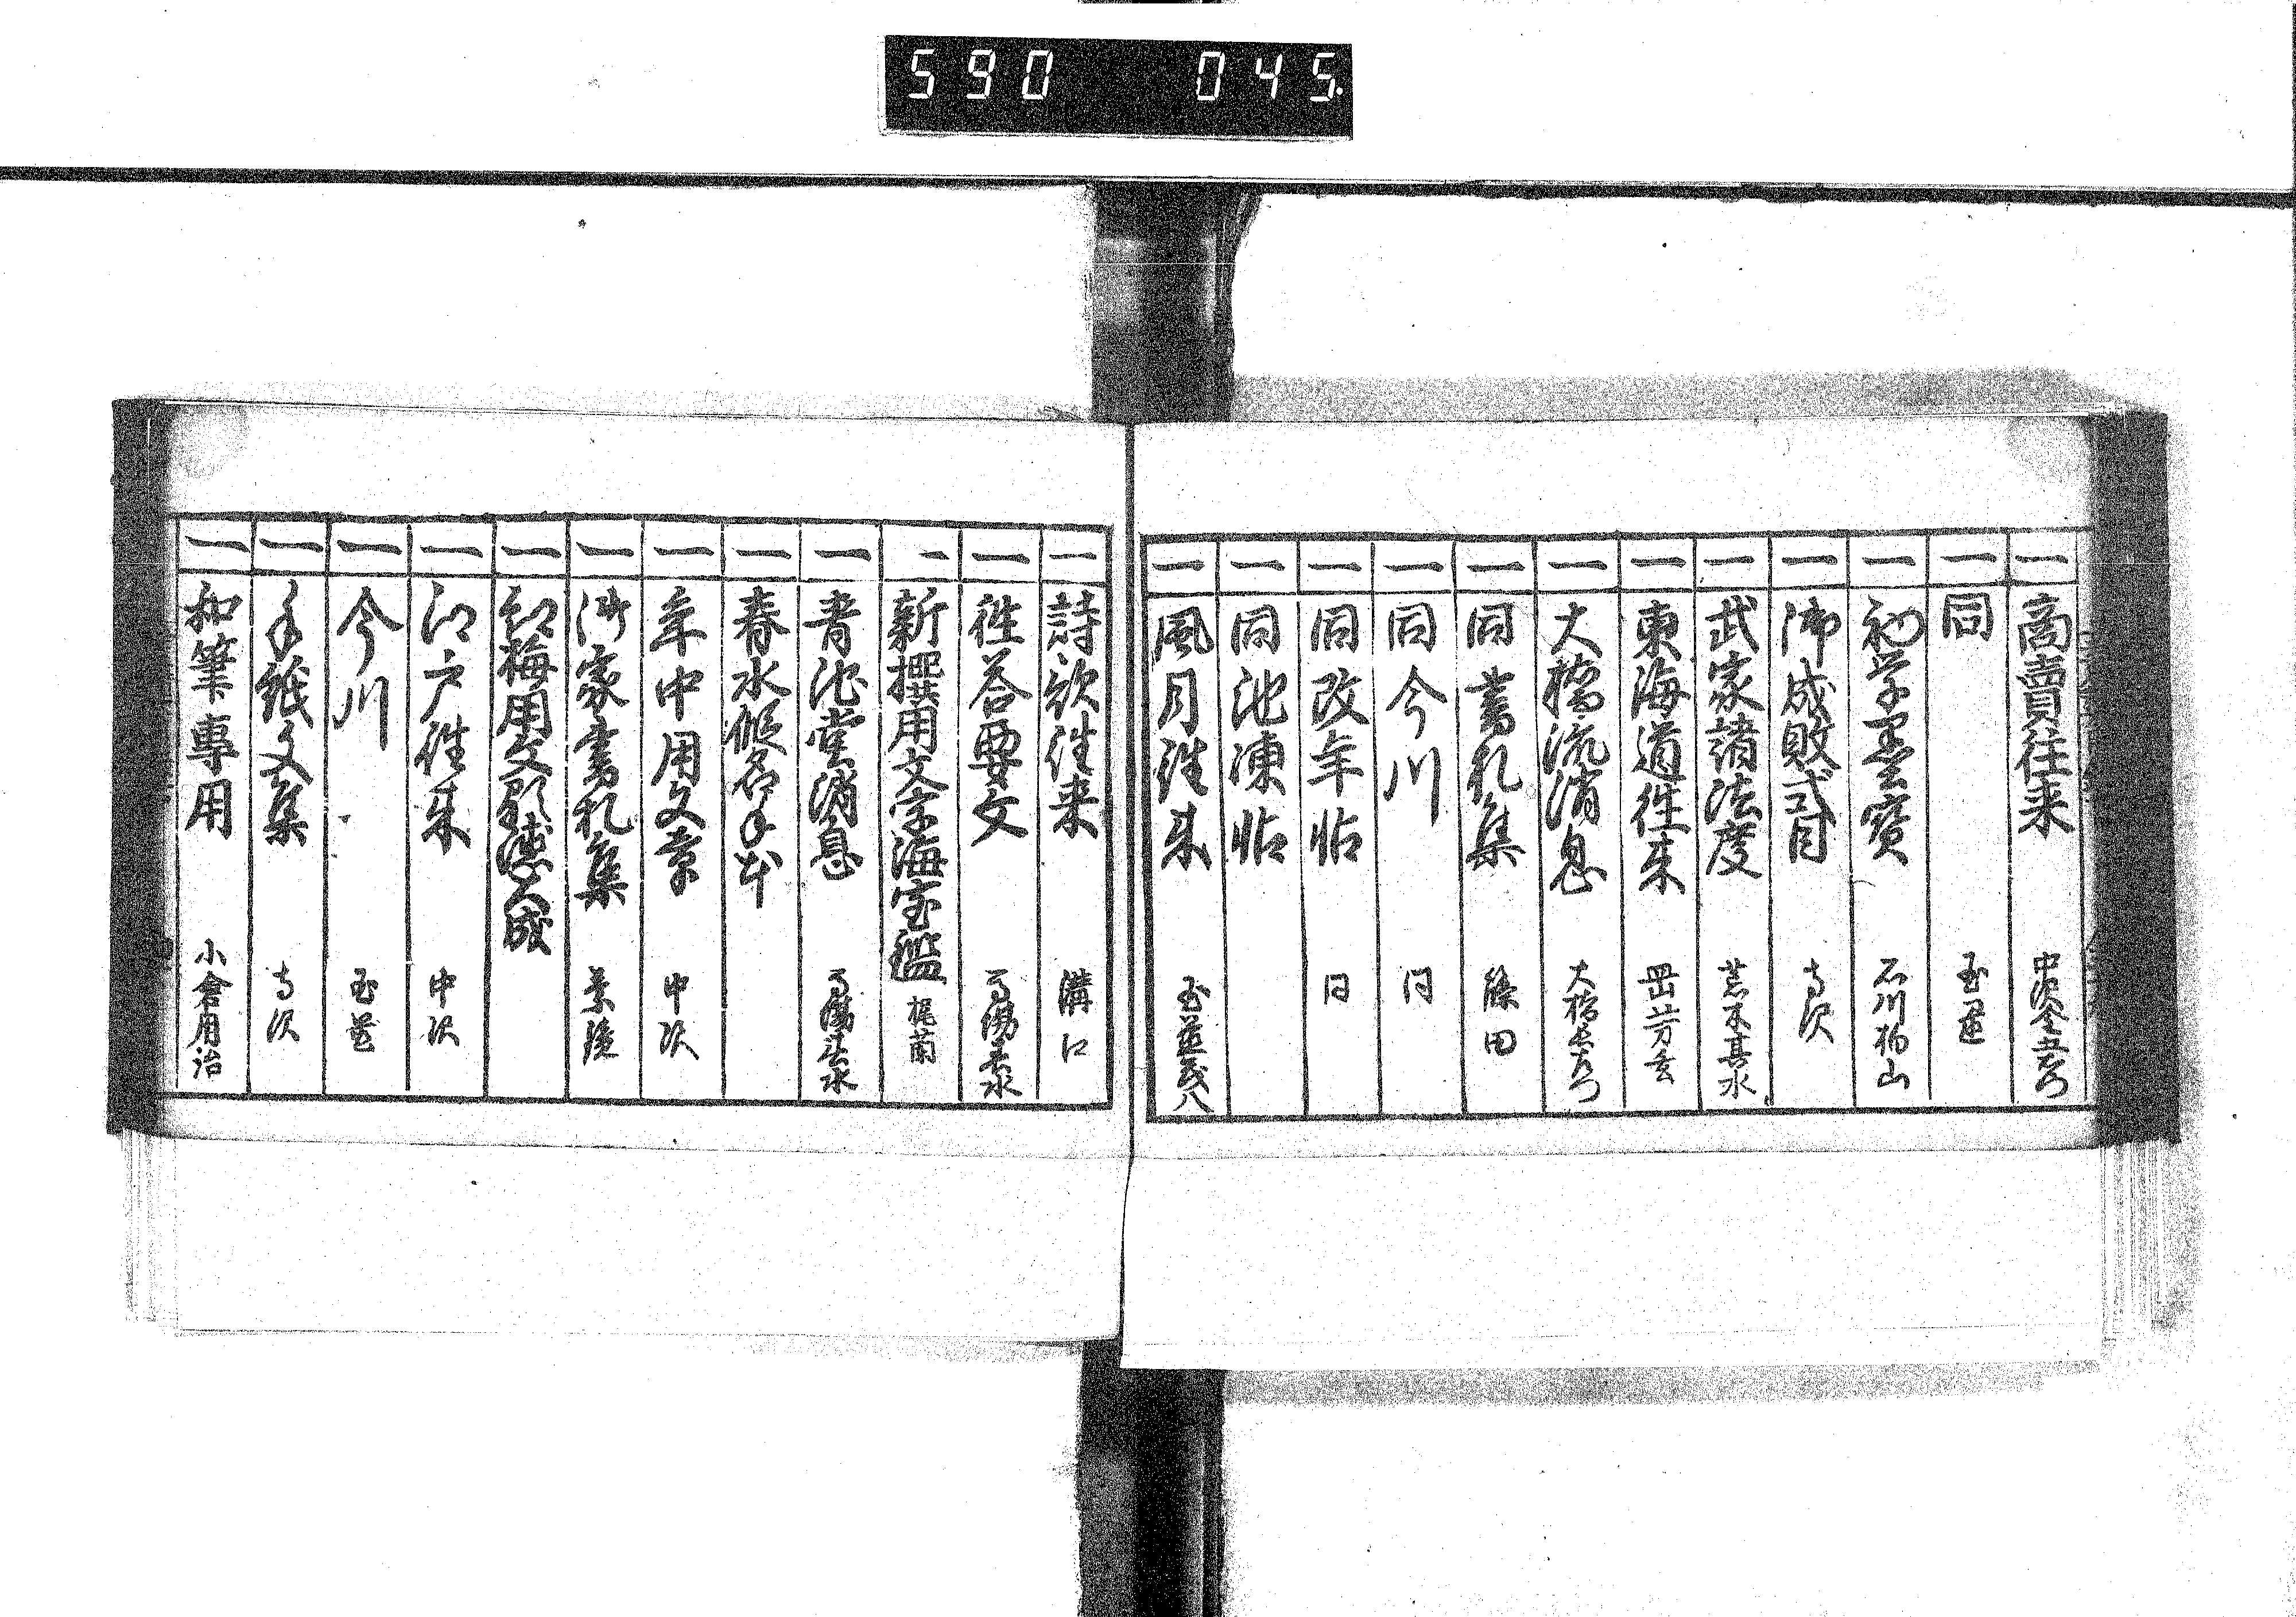 590 045
一 商賣往来 中沢金五右衛門
一 同 玉置
一 初学墨宝 石川柏山
一 御成敗式目 寺沢
一 武家諸法度 荒木甚水
一 東海道往来 芳玄
一 大橋流消息 大橋
一 同書札集 篠田
一 同今川 同
一 同改年帖 同
一 同池凍帖
一 風月往来 玉置茂八
一 詩歌往来 溝口
一 往荅要文 馬場春水
一 新撰用文字海宝鑑 梶
一 青池堂消息 馬場春水
一 春水假名手本
一 年中用文章 中沢
一 御家書札集
一 紅梅用文大成
一 江戸往来 中沢
一 今川 玉置
一 手紙文集 寺沢
一 和筆専用 小倉用治